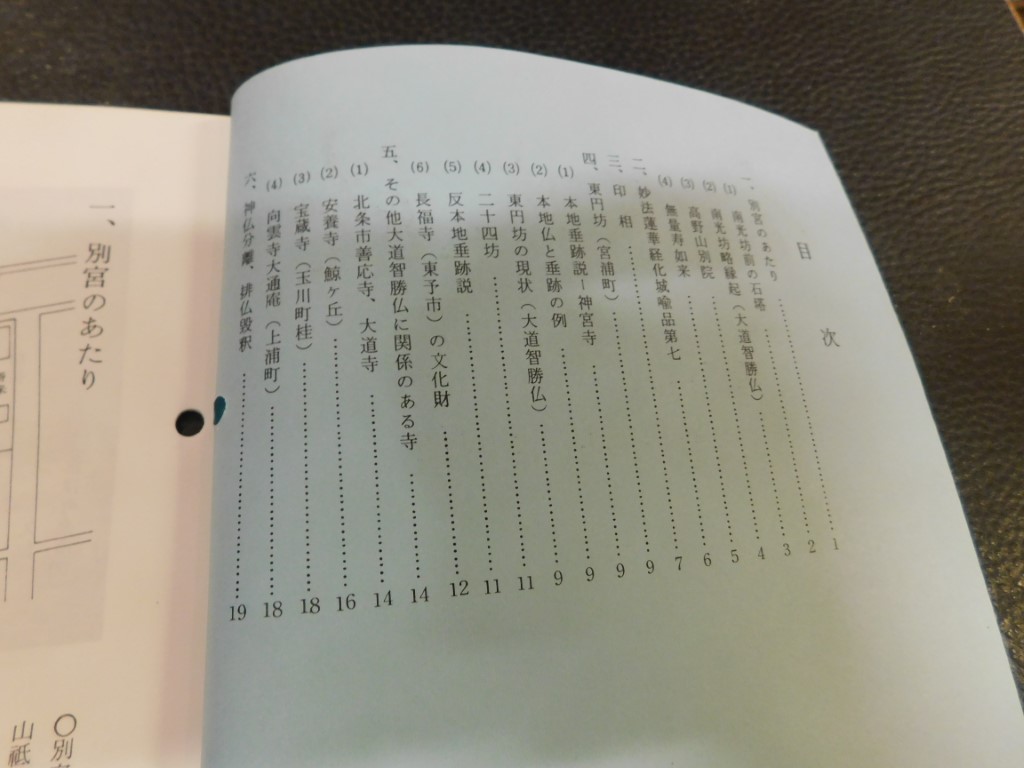 目次
一、別宮のあたり……………1
(1) 南光坊前の石塔……………2
(2) 南光坊略縁起（大道智勝仏）……………3
(3) 高野山別院……………4
(4) 無量寿如来……………5
二、妙法蓮華経化城喩品第七……………6
三、印相……………7
四、東円坊（宮浦町）……………9
(1) 本地垂跡説―神宮寺……………9
(2) 本地仏と垂跡の例……………9
(3) 東円坊の現状（大道智勝仏）……………9
(4) 二十四坊……………11
(5) 反本地垂跡説……………11
(6) 長福寺（東予市）の文化財……………12
五、その他大道智勝仏に関係のある寺……………14
(1) 北条市善応寺、大道寺……………14
(2) 安養寺（鯨ヶ丘）……………16
(3) 宝蔵寺（玉川町桂）……………18
(4) 向雲寺大通庵（上浦町）……………18
六、神仏分離、排仏毀釈……………19
一、別宮のあたり
〇別
山祇